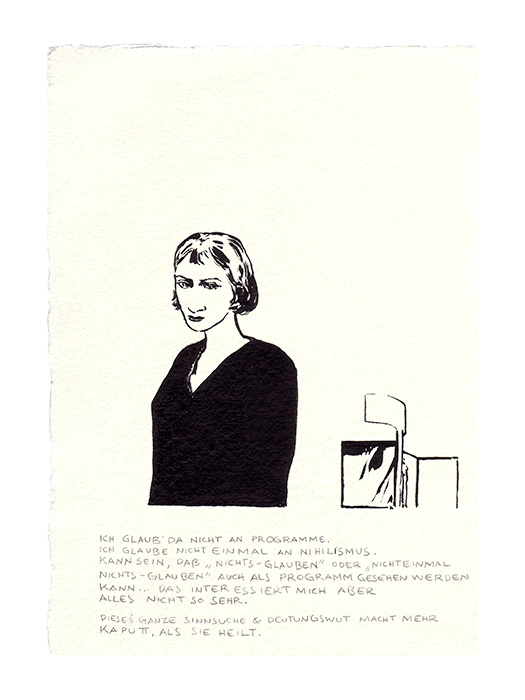 ICH GLAUB' DA NICHT AN PROGRAMME.
ICH GLAUBE NICHT EINMAL AN NIHILISMUS.
KANN SEIN, DAß „NICHTS-GLAUBEN" ODER „NICHTEINMAL
NICHTS-GLAUBEN" AUCH ALS PROGRAMM GESEHEN WERDEN
KANN... DAS INTERESSIERT MICH ABER
ALLES NICHT SO SEHR.
DIESES GANZE SINNSUCHE & DEUTUNGSWUT MACHT MEHR
KAPUTT, ALS SIE HEILT.